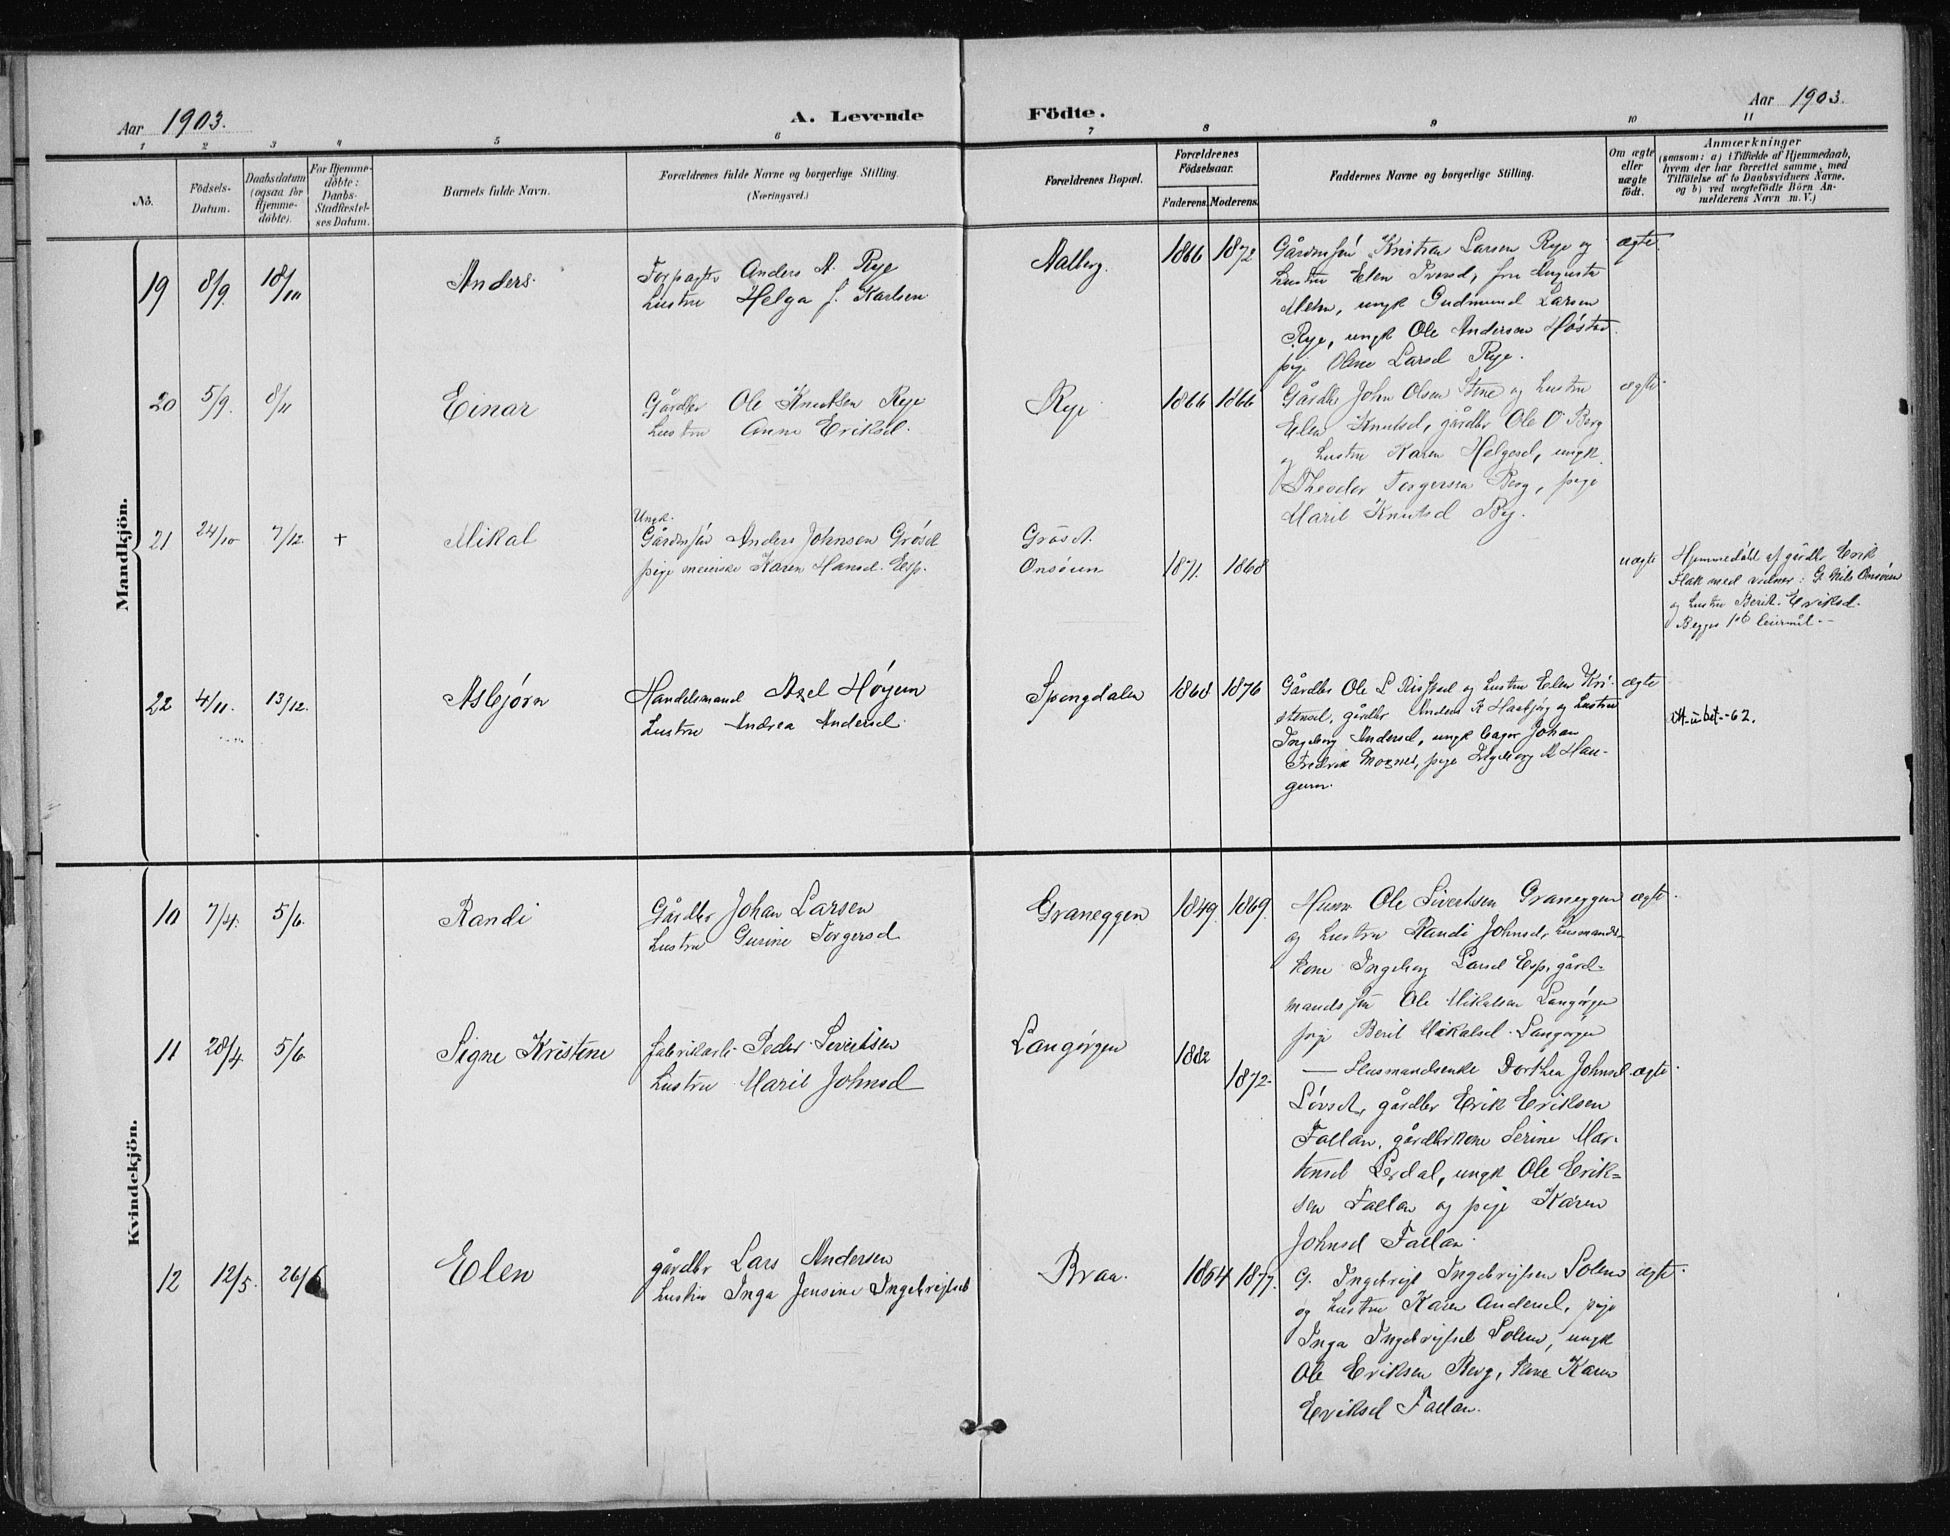 Aar 1903.
A. Levende Födte.
Aar 1903.
1 2 3 4 5 6 7 8 9 10 11
No.
Födsels-
Datum.
Daabsdatum
(ogsaa for
Hjemme-
döbte).
For Hjemme-
döbte:
Daabs-
Stadfæstel-
ses Datum.
Barnets fulde Navn.
Forældrenes fulde Navne og borgerlige Stilling.
(Næringsvei.)
Forældrenes Bopæl.
Forældrenes
Födselsaar.
Faderens. Moderens.
Faddernes Navne og borgerlige Stilling.
Om ægte
eller
uægte
födt.
Anmærkninger
(saasom: a) i Tilfælde af Hjemmedaab,
hvem der har forrettet samme, med
Tilföielse af to Daabsvidners Navne,
og b) ved uegtefödte Börn An-
melderens Navn m. V.)
Mandkjön.
19 8/9 18/10 Anders.
Forpagter Anders A. Rye
Hustru Helga J. Karlsen
Aalberg.
1866 1872
Gårdmsøn Kristian Larsen Rye og
Hustru Elen Iversd, fru Augusta
Mehn, ungk Gudmund Larsen
Rye, ungk Ole Andersen
pige Oline Larsd Rye.
ægte.
20 5/9. 8/11 Einar
Gårdbr Ole Knutsen Rye
Hustru Anne Eriksd.
Rye.
1866 1866
Gårdbr John Olsen Stene og Hustru
Elen Knutsd, gårdbr Ole O Berg
og Hustru Karen Helgesd, ungk
Theodor Torgersen Berg, pige
Marit Knutsd By.
ægte.
21 24/10 7/12. + Mikal
Ungk.
Gårdmsøn Anders Johnsen Grøset
pige meierske Karen Hansd. Esp.
Grøset.
Onsøien
1871. 1868
uægte
Hjemmedøbt af gårdbr Erik
Flak med vidner: G. Nils Onsøien
og Hustru Berit Eriksd.
Begges 1st leiermål.
22 4/11. 13/12. Asbjørn
Handelsmand Axel Høyem
Hustru Andrea Andersd.
Spongdalen
1868 1876
Gårdbr Ole L Risstad og Hustru Elen Kri-
stensd, gårdbr Anders K Haabjørg og Hustru
Ingeborg Andersd, ungk bager Johan
Fredrik Moxnes, pige Ingeborg K Hau-
gum.
ægte
Kvindekjön.
10 7/4. 5/6. Randi
Gårdbr Johan Larsen
Hustru Gurine Torgersd
Graneggen
1849. 1869.
Husm Ole Sivertsen Graneggen
og Hustru Randi Johnsd, husmands-
kone Ingeborg Larsd Esp, gård-
mandssøn Ole Mikalsen Langørgen
pige Berit Mikalsd Langørgen
ægte.
11 28/4. 5/6. Signe Kristine
fabrikarb. Peder Sivertsen
Hustru Marit Johnsd
Langørgen
1882
1872.
— Husmandsenke Dorthea Johnsd
Løvset, gårdbr Erik Eriksen
Fallan, gårdbrkone Serine Mar-
tinsd Lerdal, ungk Ole Erik-
sen Fallan og pige Karen
Johnsd Fallan.
ægte.
12 12/5. 26/6 Elen
gårdbr Lars Andersen
Hustru Inga Jensine Ingebrigtsd
Braa.
1864 1877.
G. Ingebrigt Ingebrigtsen Solem
og Hustru Karen Andersd, pige
Inga Ingebrigtsd Solem, ungk
Ole Eriksen Berg, kone Karen
Eriksd Fallan.
ægte.